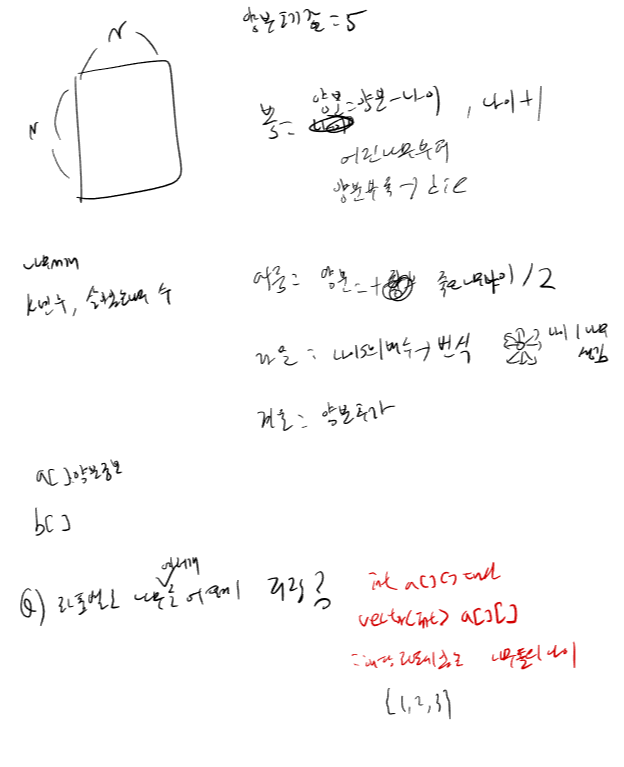 N
양분초기값=5
N
봄= 양분=양분-나이, 나이+1
어린나무부터
양분부족→die
나무M개
K년후, 살아남은나무 수
여름= 양분=+ 죽은나무나이/2
가을= 나이5의배수→번식 나이1나무
생김
겨울= 양분추가
a[ ]:양분정보
b[ ]
여러개
Q) 좌표별로 나무를 어떻게 저장?
int a[ ][ ]
vector<int> a[ ][ ]
나무들의나이
{1,2,3}